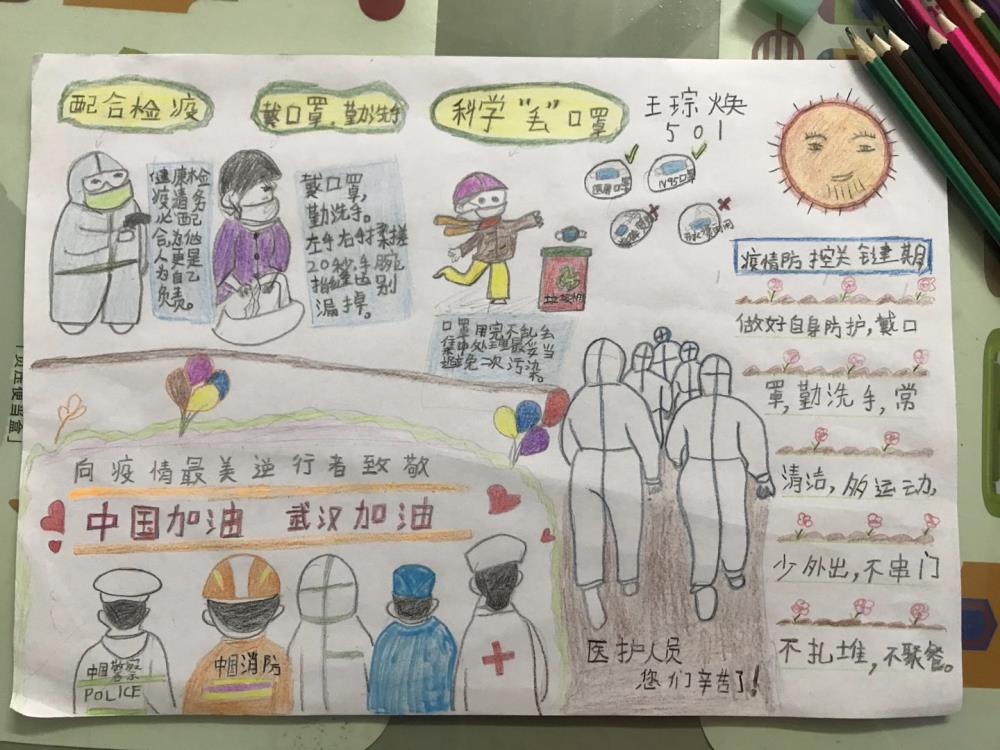 配合检疫
戴口罩,勤洗手
科学“丢”口罩
王琮焕
501
健康检
疫请务
必配
合,为他
人更是
为自己
负责。
戴口罩,
勤洗手。
左手右手揉搓
20秒,手腕
指缝齿别
漏掉。
医用口罩
N95口罩
垃圾桶
口罩用完不乱丢
集中处理最妥当
避免二次污染。
疫情防控关键期
做好自身防护,戴口
罩,勤洗手,常
清洁,多运动,
少外出,不串门
不扎堆,不聚餐。
向疫情最美逆行者致敬
中国加油 武汉加油
中国警察
POLICE
中国消防
医护人员
您们辛苦了!
「负压便当盒」